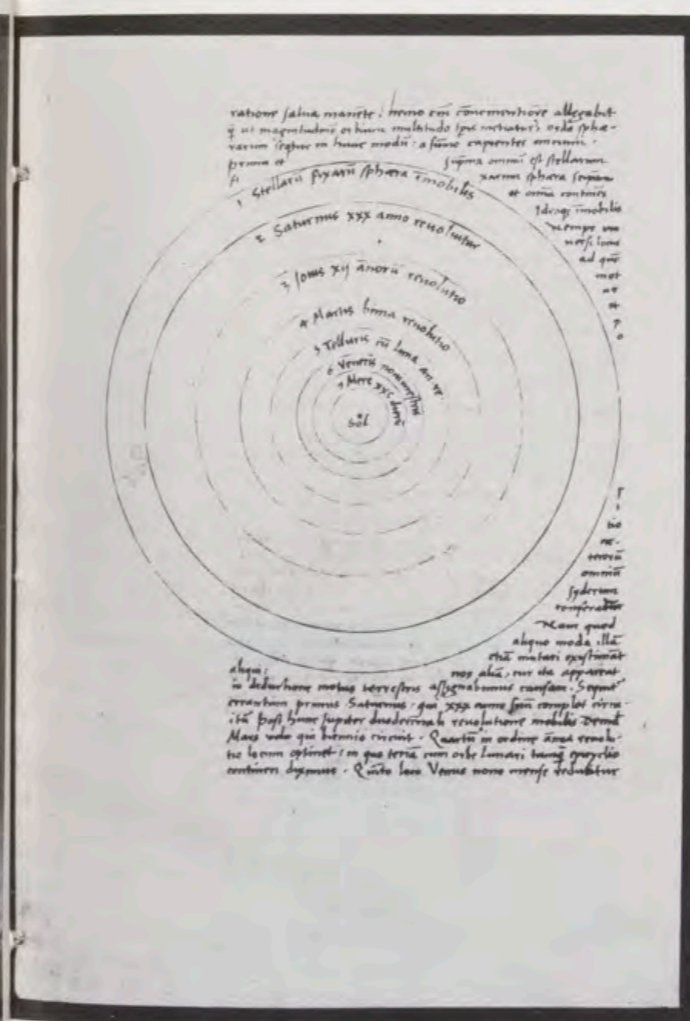 ratione salua manēte: nemo em̄ cōuenientiorē allegabit
q̄ ut magnitudinē orbium multitudo tp̄is metiatur: ordo sphæ-
rarum sequitur in hunc modū: a sūmo capientes initium.
prima et suprema omniū est stellarum
fi xarum sphæra seipsam
et omīa continēs
Ideoq̄ īmobilis
nempe vni
uersi locus
ad quē
mot
us
et
p
o
1 Stellarū fixarū sphæra īmobilis
2 Saturnus xxx anno reuoluitur
3 Iouis xij ānorū reuolutio
4 Martis bima reuolutio
5 Telluris cū luna an. re.
6 Veneris nonimestris
7 Merc xxc dierū
Sol
T
i
tio
ne-
terorū
omniū
syderum
conferatur
Nam quod
aliquo modo illā
etiā mutari existimāt
aliqui: nos aliā, cur ita appareat
in deductione motus terrestris assignabimus causam. Sequit
errantium primus Saturnus: qui xxx anno suū complet circu-
itū post hunc Jupiter duodecennali reuolutione mobilis Demū
Mars volo qui biennio circuit. Quartū in ordine ānua reuolu-
tio locum optinet: in quo terrā cum orbe Lunari tanq̄ epicyclio
contineri diximus. Quinto loco Venus nono mense reducitur